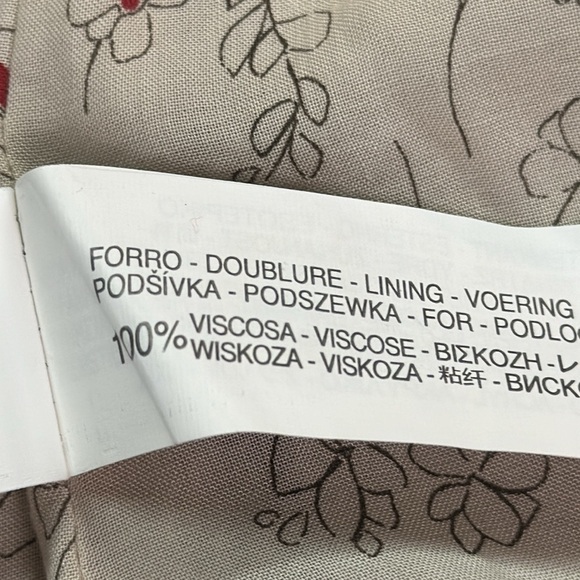 FORRO - DOUBLURE - LINING - VOERING
PODŠÍVKA - PODSZEWKA - FOR -
100% VISCOSA - VISCOSE - ΒΙΣΚΟΖΗ -
WISKOZA - VISKOZA - 粘纤 -